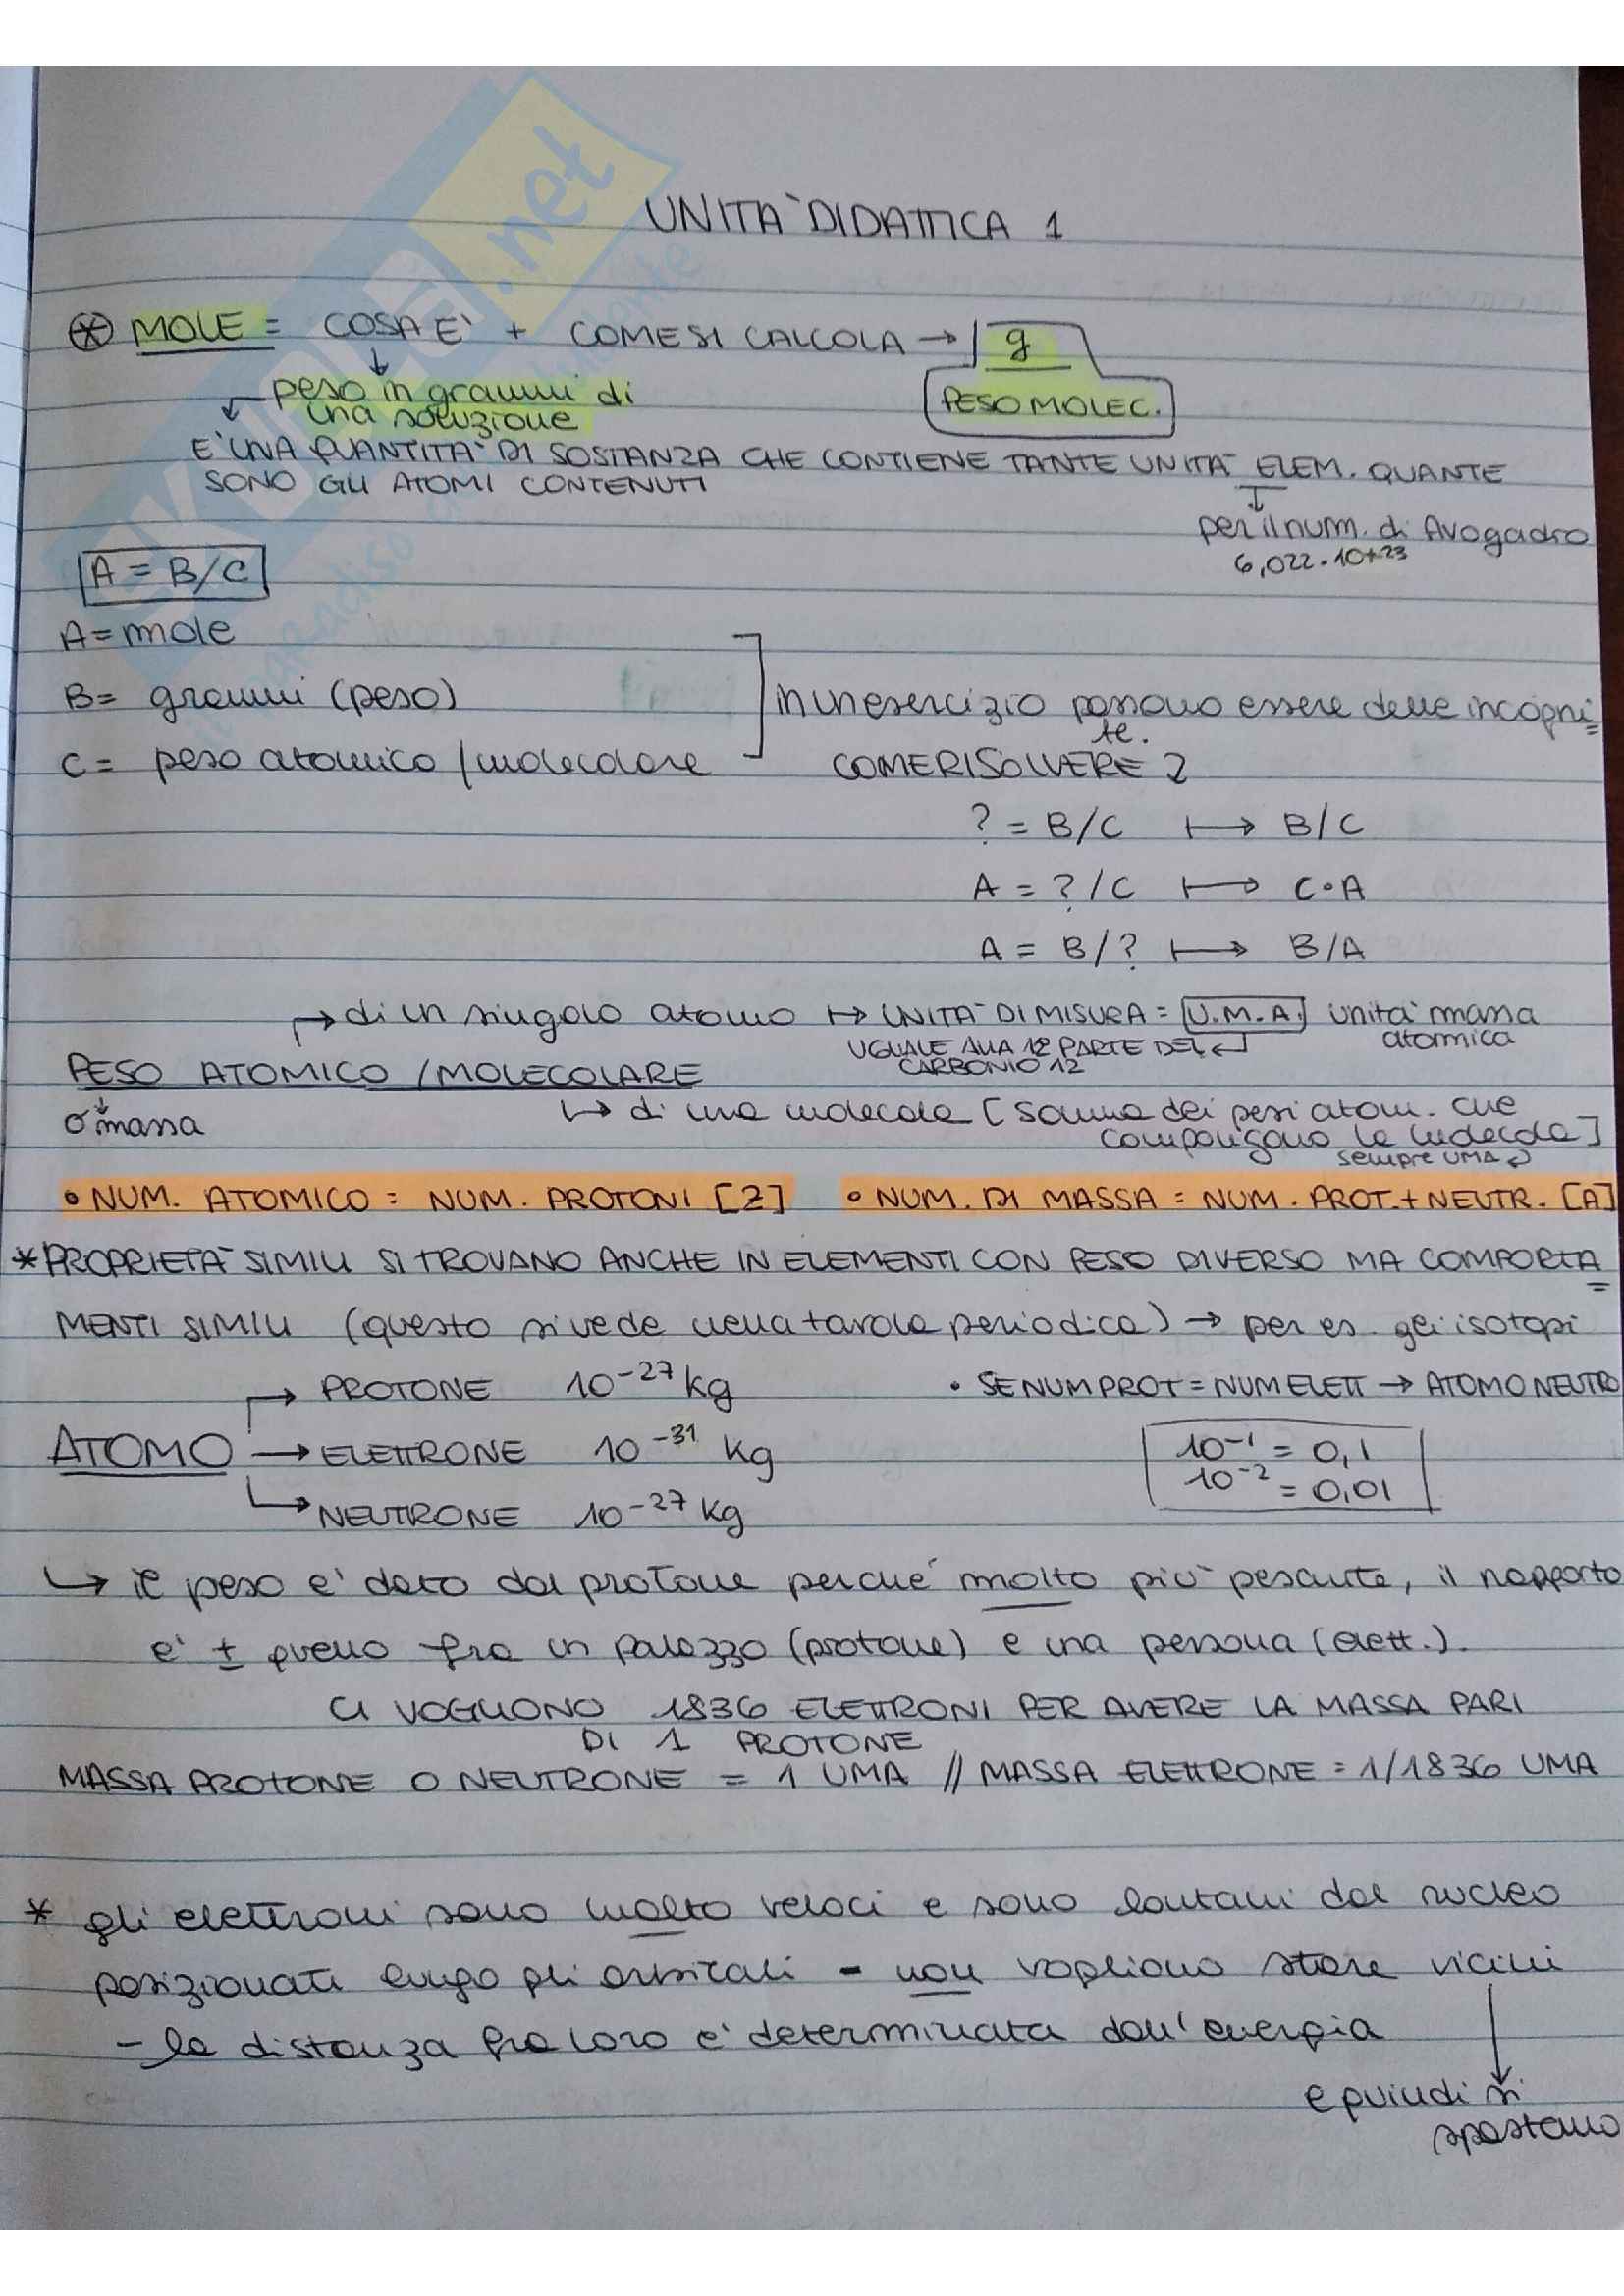 UNITA' DIDATTICA 1
* MOLE = COSA E' + COME SI CALCOLA → g
peso in grammi di
una soluzione
PESO MOLEC.
E' UNA QUANTITA' DI SOSTANZA CHE CONTIENE TANTE UNITA' ELEM. QUANTE
SONO GLI ATOMI CONTENUTI
per il num. di Avogadro
6,022 · 10+23
A = B/C
A = mole
B = grammi (peso)
in un esercizio possono essere delle incogni=
te.
C = peso atomico / molecolare
COME RISOLVERE ?
? = B/C ↦ B/C
A = ?/C ↦ C·A
A = B/? ↦ B/A
→ di un singolo atomo ↦ UNITA' DI MISURA = U.M.A. unità massa
atomica
UGUALE ALLA 12 PARTE DEL
CARBONIO 12
PESO ATOMICO / MOLECOLARE
o massa
↳ di una molecola [somma dei pesi atom. che
compongono la molecola]
sempre UMA
• NUM. ATOMICO = NUM. PROTONI [Z] • NUM. DI MASSA = NUM. PROT. + NEUTR. [A]
* PROPRIETA' SIMILI SI TROVANO ANCHE IN ELEMENTI CON PESO DIVERSO MA COMPORTA=
MENTI SIMILI (questo si vede nella tavola periodica) → per es. gli isotopi
→ PROTONE 10⁻²⁷ kg
• SE NUM PROT = NUM ELETT → ATOMO NEUTRO
ATOMO → ELETTRONE 10⁻³¹ kg
10⁻¹ = 0,1
10⁻² = 0,01
→ NEUTRONE 10⁻²⁷ kg
↳ il peso e' dato dal protone perché molto più pesante, il rapporto
e' ± quello fra un palazzo (protone) e una persona (elett.).
CI VOGLIONO 1836 ELETTRONI PER AVERE LA MASSA PARI
DI 1 PROTONE
MASSA PROTONE O NEUTRONE = 1 UMA // MASSA ELETTRONE = 1/1836 UMA
* gli elettroni sono molto veloci e sono lontani dal nucleo
posizionati lungo gli orbitali - non vogliono stare vicini
- la distanza fra loro e' determinata dall'energia
e quindi si
spostano